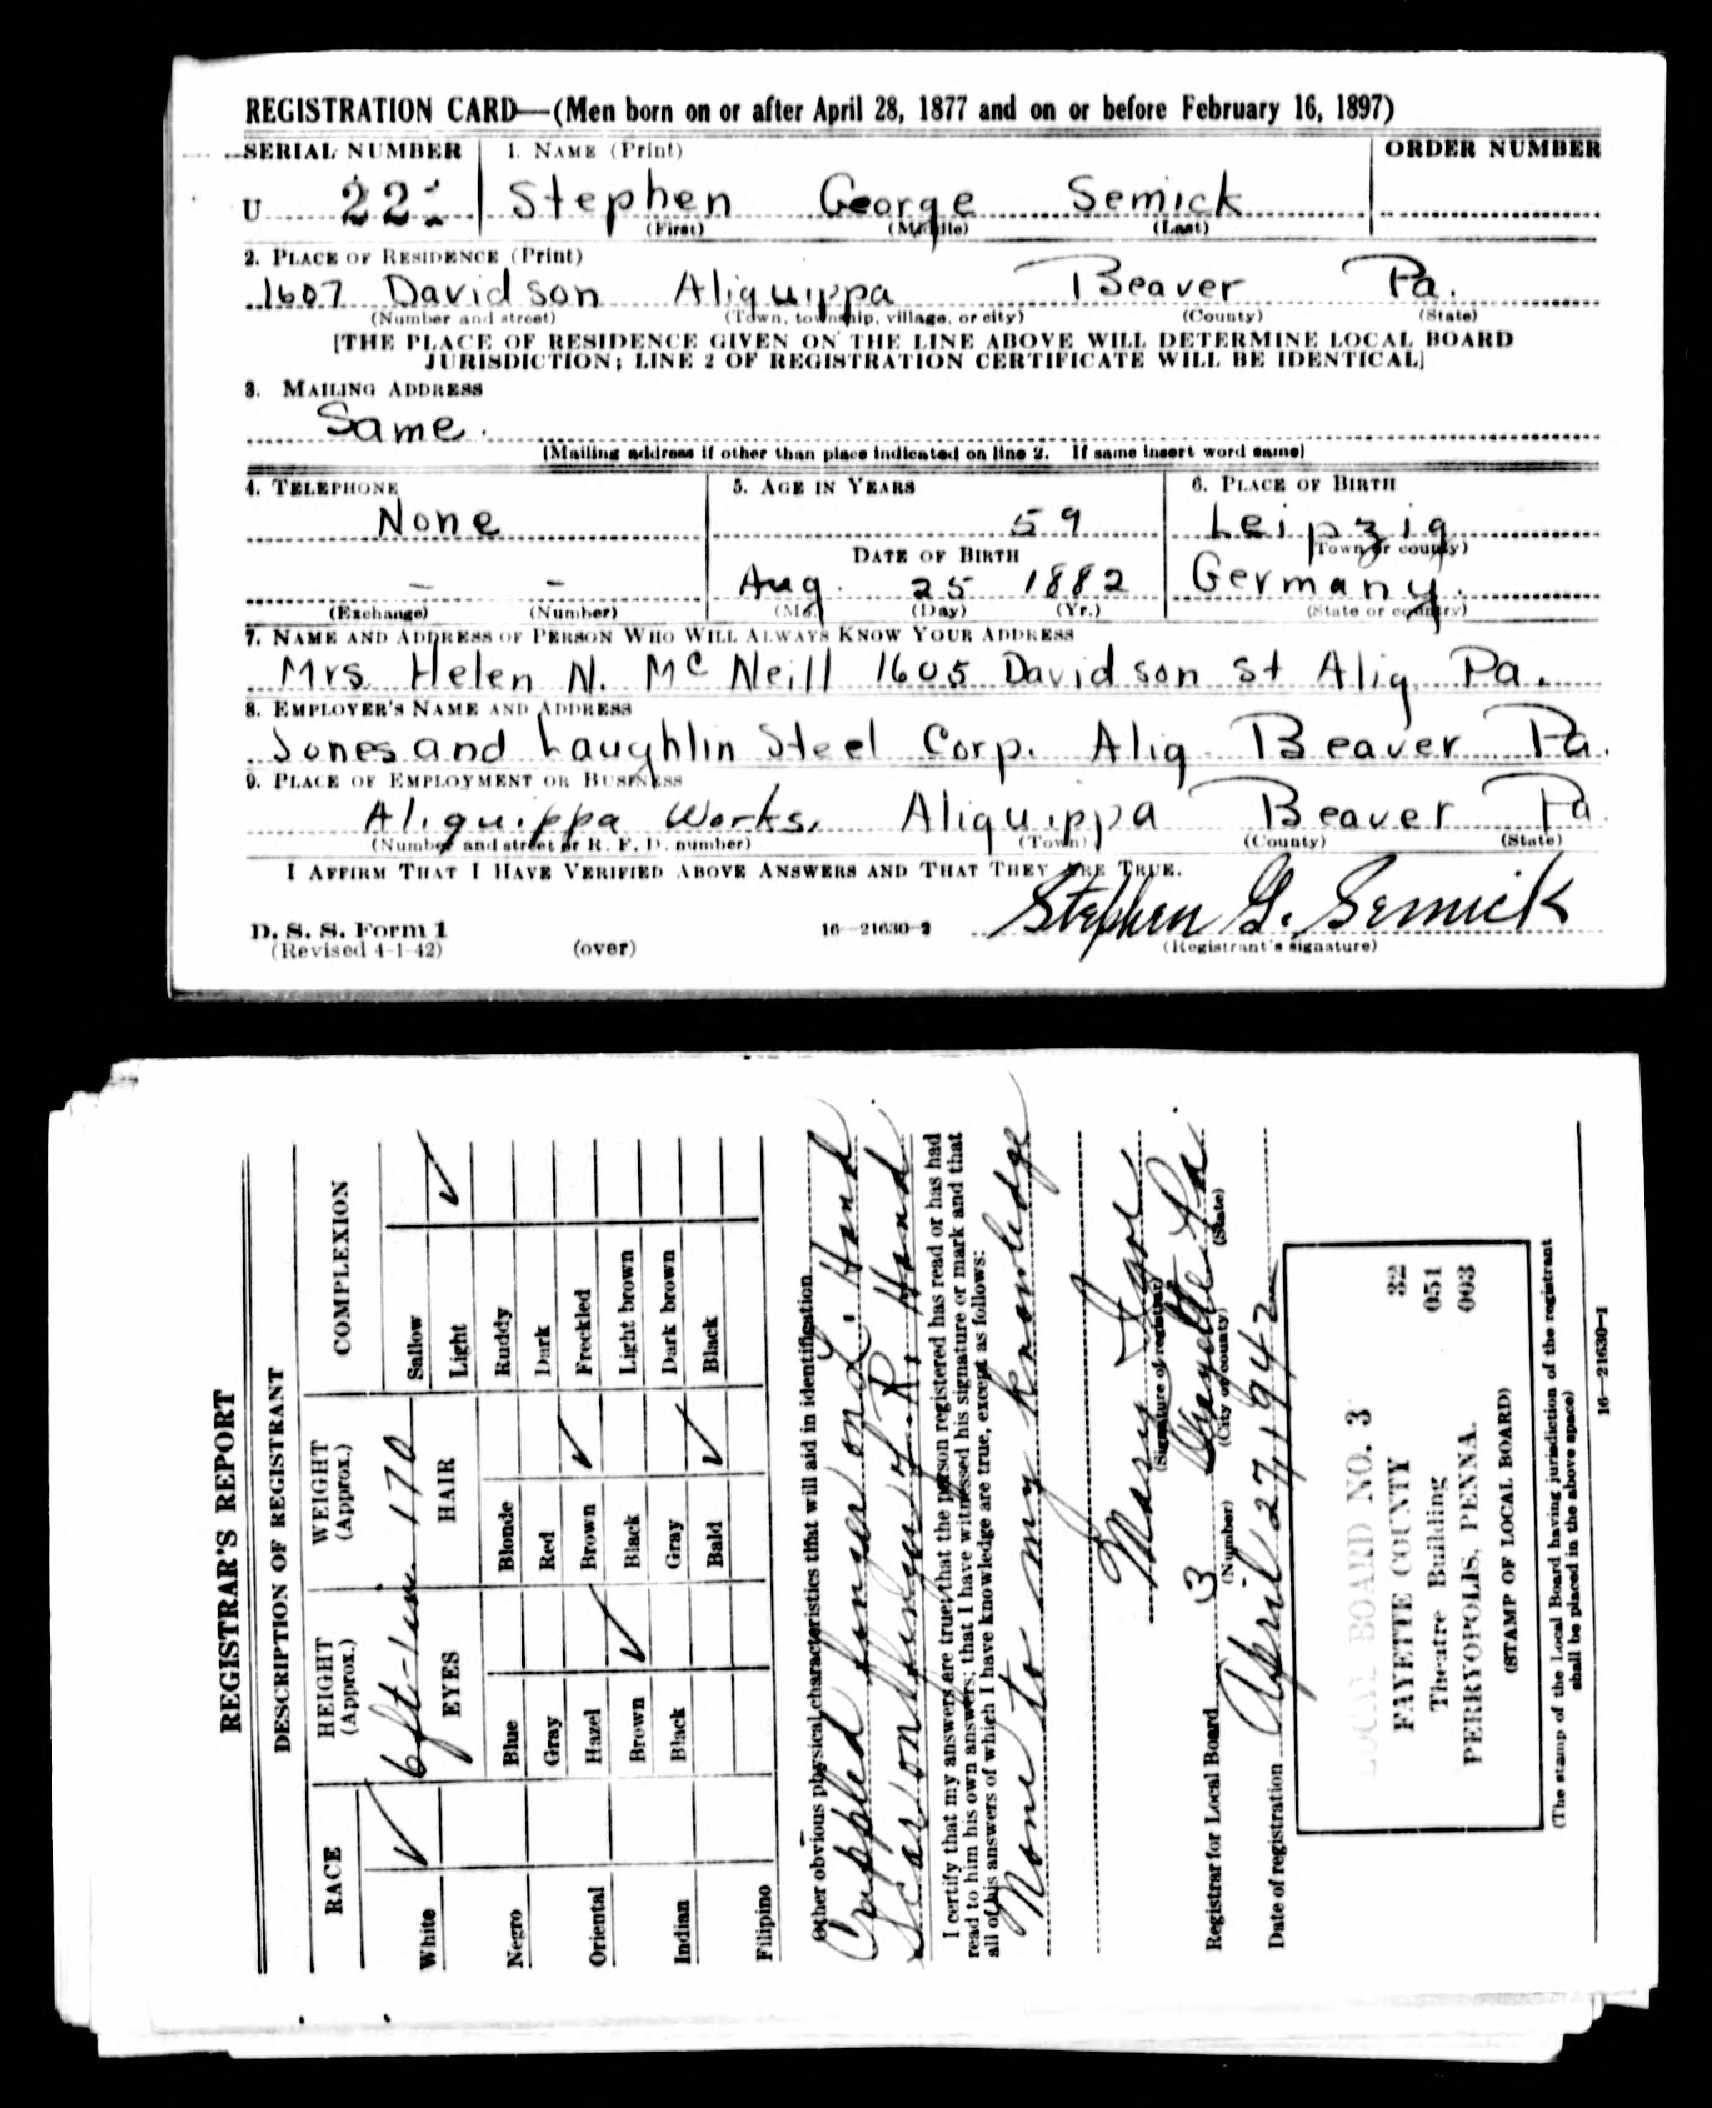 REGISTRATION CARD—(Men born on or after April 28, 1877 and on or before February 16, 1897)
SERIAL NUMBER 1. NAME (Print) ORDER NUMBER
U 22 Stephen George Semick
(First) (Middle) (Last)
2. PLACE OF RESIDENCE (Print)
1607 Davidson Aliquippa Beaver Pa.
(Number and street) (Town, township, village, or city) (County) (State)
[THE PLACE OF RESIDENCE GIVEN ON THE LINE ABOVE WILL DETERMINE LOCAL BOARD
JURISDICTION; LINE 2 OF REGISTRATION CERTIFICATE WILL BE IDENTICAL]
3. MAILING ADDRESS
Same.
[Mailing address if other than place indicated on line 2. If same insert word same]
4. TELEPHONE 5. AGE IN YEARS 6. PLACE OF BIRTH
None 59 Leipzig
DATE OF BIRTH (Town or county)
– – Aug. 25 1882 Germany.
(Exchange) (Number) (Mo.) (Day) (Yr.) (State or country)
7. NAME AND ADDRESS OF PERSON WHO WILL ALWAYS KNOW YOUR ADDRESS
Mrs Helen N. McNeill 1605 Davidson St Aliq Pa.
8. EMPLOYER'S NAME AND ADDRESS
Jones and Laughlin Steel Corp. Aliq. Beaver Pa.
9. PLACE OF EMPLOYMENT OR BUSINESS
Aliquippa Works. Aliquippa Beaver Pa
(Number and street or R. F. D. number) (Town) (County) (State)
I AFFIRM THAT I HAVE VERIFIED ABOVE ANSWERS AND THAT THEY ARE TRUE.
Stephen G. Semick
D. S. S. Form 1 16—21630-2 (Registrant's signature)
(Revised 4-1-42) (over)
REGISTRAR'S REPORT
DESCRIPTION OF REGISTRANT
RACE HEIGHT (Approx.) WEIGHT (Approx.) COMPLEXION
White ✓ 6ft-1in 170 Sallow
EYES HAIR Light ✓
Negro Blue Blonde Ruddy
Gray Red Dark
Oriental Hazel Brown ✓ Freckled
Brown ✓ Black Light brown
Indian Black Gray Dark brown
Bald ✓ Black
Filipino
Other obvious physical characteristics that will aid in identification
Crippled finger on L. Hand
Scar on finger of R. Hand
I certify that my answers are true; that the person registered has read or has had
read to him his own answers; that I have witnessed his signature or mark and that
all of his answers of which I have knowledge are true, except as follows:
None to my knowledge
Mary
(Signature of registrar)
Registrar for Local Board 3 Fayette Pa.
(Number) (City or county) (State)
Date of registration April 27, 1942
LOCAL BOARD NO. 3 32
FAYETTE COUNTY 051
Theatre Building 003
PERRYOPOLIS, PENNA.
(STAMP OF LOCAL BOARD)
(The stamp of the Local Board having jurisdiction of the registrant
shall be placed in the above space)
16—21630-1